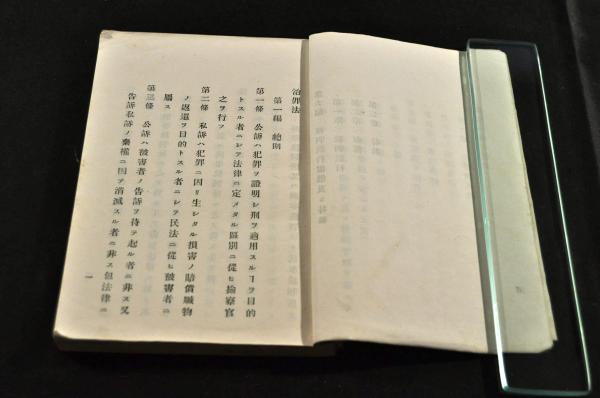 治罪法
第一編 總則
第一條 公訴ハ犯罪ヲ證明シ刑ヲ適用スルヿヲ目的
トスル者ニシテ法律ニ定メタル區別ニ從ヒ檢察官
之ヲ行フ
第二條 私訴ハ犯罪ニ因リ生シタル損害ノ賠償贓物
ノ返還ヲ目的トスル者ニシテ民法ニ從ヒ被害者ニ
屬ス
第三條 公訴ハ被害者ノ告訴ヲ待テ起ル者ニ非ス又
告訴私訴ノ棄權ニ因テ消滅スル者ニ非ス但法律ニ
一